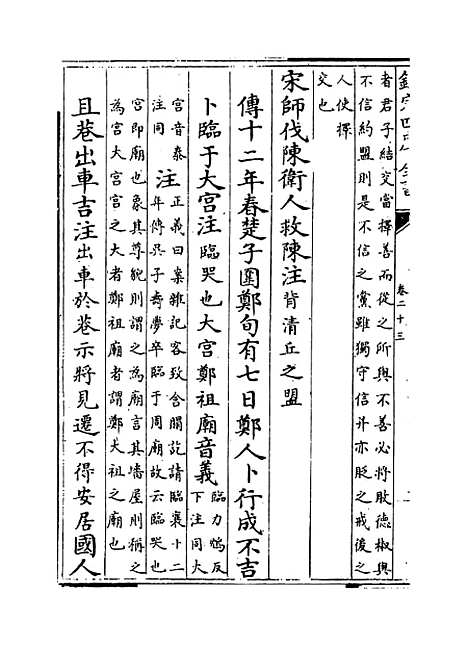 欽定四庫全書
卷二十三
者君子結交當擇善而從之所與不善必將敗德椒與
不信約盟則是不信之黨雖獨守信并亦貶之戒後之
人使擇
交也
宋師伐陳衛人救陳注背清丘之盟
傳十二年春楚子圍鄭旬有七日鄭人卜行成不吉
卜臨于大宮注臨哭也大宮鄭祖廟音義
臨力鴆反
下注同大
宮音泰
注同
注
正義曰案雜記客致含賵訖請臨襄十二
年傳吳子壽夢卒臨于周廟故云臨哭也
宮即廟也象其尊貌則謂之為廟言其墻屋則稱之
為宮大宮宮之大者鄭祖廟者謂鄭大祖之廟也
且巷出車吉注出車於巷示將見遷不得安居國人